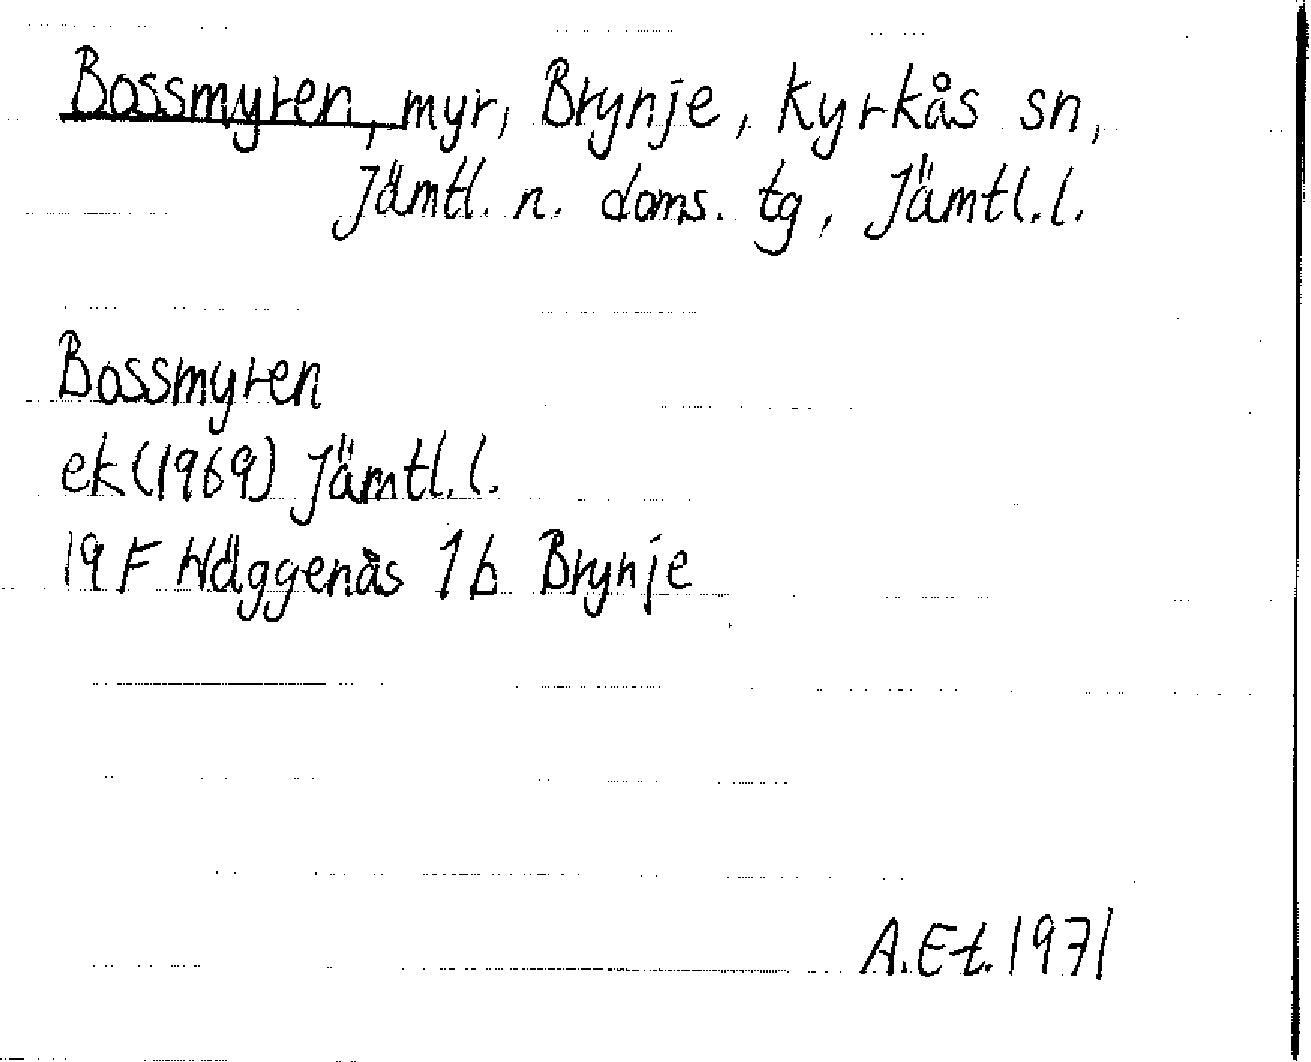 Bossmyren, myr, Brynje, Kyrkås sn,
Jämtl. n. doms. tg, Jämtl. l.
Bossmyren
ek (1969) Jämtl. l.
19 F Häggenås 1 b Brynje
A.Et. 1971